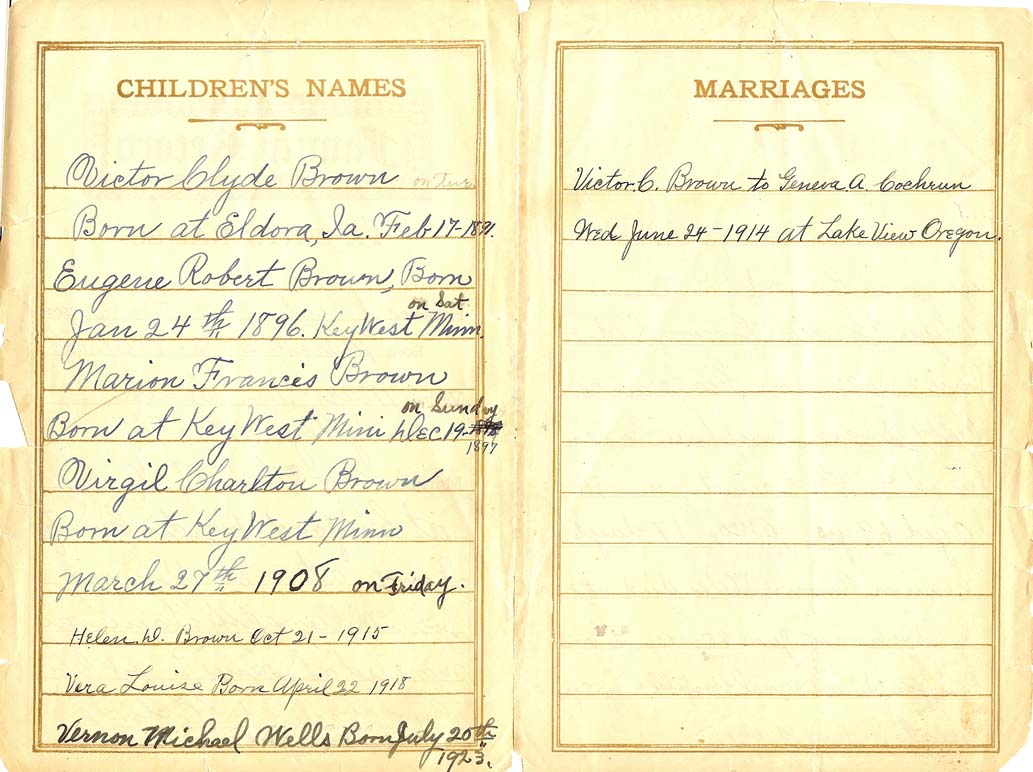 CHILDREN'S NAMES
Victor Clyde Brown on Tues
Born at Eldora, Ia. Feb 17-1891.
Eugene Robert Brown, Born
on Sat
Jan 24th 1896. Key West Minn.
Marion Francis Brown
on Sunday
Born at Key West Minn Dec 19-
1897
Virgil Charlton Brown
Born at Key West Minn
March 27th 1908 on Friday.
Helen. D. Brown Oct 21-1915
Vera Louise Born April 22 1918
Vernon Michael Wells Born July 20th
1923.
MARRIAGES
Victor. C. Brown to Geneva. A. Cochrun
Wed June 24-1914 at Lake View Oregon.